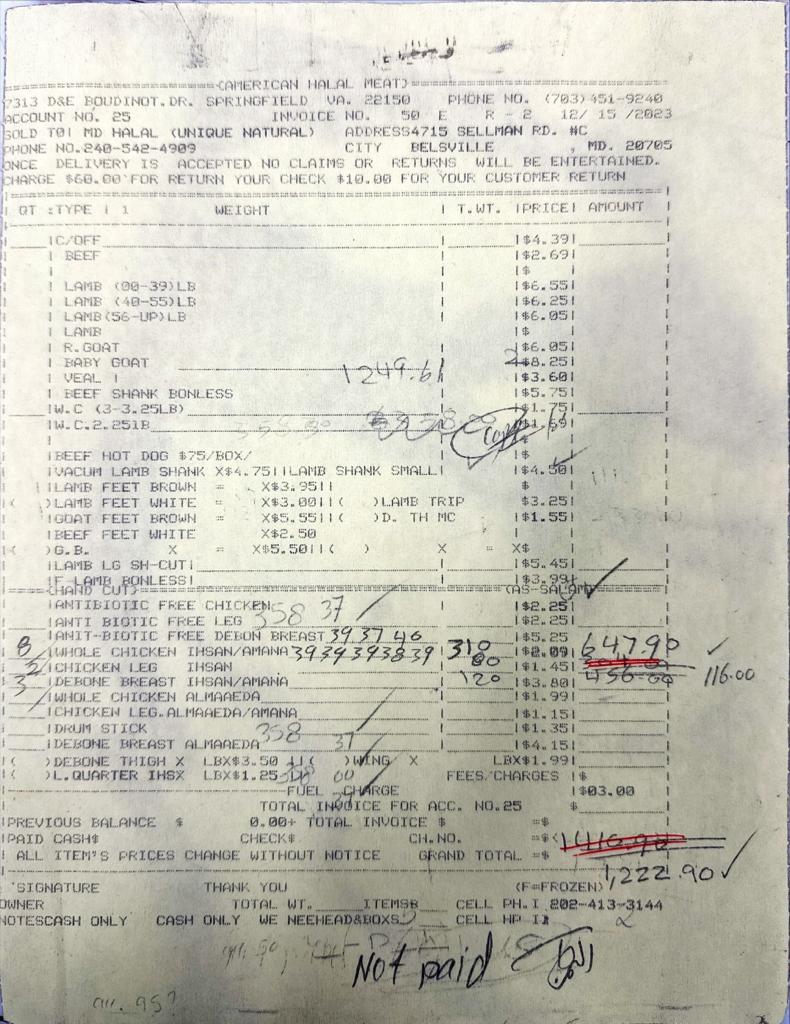 (AMERICAN HALAL MEAT)
7313 D&E BOUDINOT.DR. SPRINGFIELD VA. 22150 PHONE NO. (703)451-9240
ACCOUNT NO. 25 INVOICE NO. 50 E R - 2 12/ 15 /2023
SOLD TO! MD HALAL (UNIQUE NATURAL) ADDRESS4715 SELLMAN RD. #C
PHONE NO.240-542-4909 CITY BELSVILLE , MD. 20705
ONCE DELIVERY IS ACCEPTED NO CLAIMS OR RETURNS WILL BE ENTERTAINED.
CHARGE $60.00 FOR RETURN YOUR CHECK $10.00 FOR YOUR CUSTOMER RETURN
QT :TYPE | 1 WEIGHT | T.WT. |PRICE| AMOUNT
|C/OFF |$4.39|
| BEEF |$2.69|
|$
| LAMB (00-39)LB |$6.55|
| LAMB (40-55)LB |$6.25|
| LAMB(56-UP)LB |$6.05|
| LAMB |$
| R.GOAT |$6.05|
| BABY GOAT 1249.61 |$8.25|
| VEAL | |$3.60|
| BEEF SHANK BONLESS |$5.75|
|W.C (3-3.25LB) |$1.75|
|W.C.2.25lB |$1.69| Copy
|$
|BEEF HOT DOG $75/BOX/ |$
|VACUM LAMB SHANK X$4.75||LAMB SHANK SMALL| |$4.50|
|LAMB FEET BROWN = X$3.95|| |$
( )LAMB FEET WHITE = X$3.00||( )LAMB TRIP |$3.25|
|GOAT FEET BROWN = X$5.55||( )D. TH MC |$1.55|
|BEEF FEET WHITE X$2.50
( )G.B. X = X$5.50||( ) X = X$
|LAMB LG SH-CUT| |$5.45|
|F LAMB BONLESS| |$3.99|
(HAND CUT) (AS-SALAM)
|ANTIBIOTIC FREE CHICKEN |$2.25|
|ANTI BIOTIC FREE LEG 358 37 |$2.25|
|ANIT-BIOTIC FREE DEBON BREAST 39 37 40 |$5.25
8 |WHOLE CHICKEN IHSAN/AMANA 39 39 39 38 39 310 |$2.09| 647.90
2 |CHICKEN LEG IHSAN 80 |$1.45| 116.00
3 |DEBONE BREAST IHSAN/AMANA 120 |$3.80| 456.00
|WHOLE CHICKEN ALMAAEDA |$1.99|
|CHICKEN LEG.ALMAAEDA/AMANA |$1.15|
|DRUM STICK |$1.35|
|DEBONE BREAST ALMAAEDA 358 37 |$4.15|
( )DEBONE THIGH X LBX$3.50 ||( )WING X LBX$1.99|
( )L.QUARTER IHSX LBX$1.25 FEES/CHARGES |$
FUEL CHARGE |$03.00
TOTAL INVOICE FOR ACC. NO.25 $
|PREVIOUS BALANCE $ 0.00+ TOTAL INVOICE $ =$
|PAID CASH$ CHECK$ CH.NO. =$<
| ALL ITEM'S PRICES CHANGE WITHOUT NOTICE GRAND TOTAL =$ 1416.90
1,222.90
SIGNATURE THANK YOU (F=FROZEN)
OWNER TOTAL WT. ITEMSB CELL PH.I 202-413-3144
NOTESCASH ONLY CASH ONLY WE NEEHEAD&BOXS CELL HP I
2
Not paid